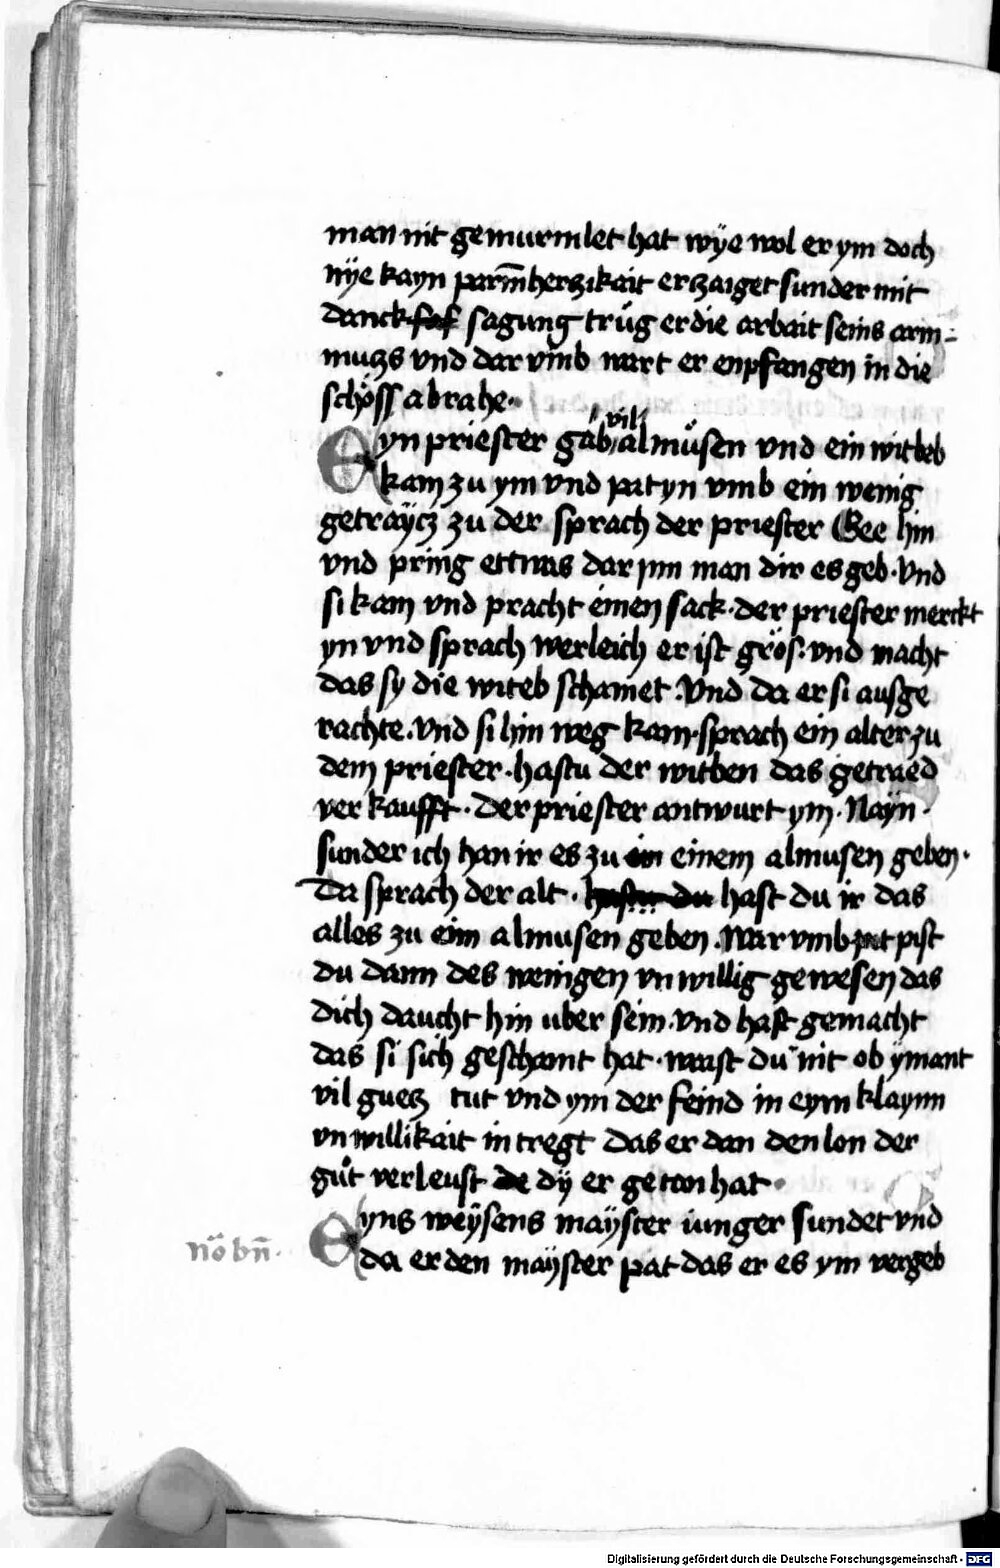 man nit gemurmlet hat wÿe wol er ym doch
nÿe kayn parm̄herzikait erzaiget sunder mit
danck sagung trug er die arbait seins arm-
mutzs vnd dar vmb wart er enpfangen in die
schöss abrahe.
Eyn priester gab vil almůsen vnd ein witbeb
kam zu ym vnd pat yn vmb ein wenig
getraÿcz zu der sprach der priester Gee hin
vnd pring ettwas dar jnn man dir es geb. Vnd
si kam vnd pracht einen sack. der priester merckt
yn vnd sprach werleich er ist grös. vnd macht
das sy die witeb schamet. Vnd da er si ausge
rachte. Vnd si hin weg kam. sprach ein alter zu
dem priester. hastu der witben das getraed
verkaufft. Der priester antwurt ym. Nayn.
sunder ich han ir es zu einem almusen geben.
Da sprach der alt. hast du ir das
alles zu eim almusen geben. War vmb pist
du dann des wenigen vnwillig gewesen das
dich daucht hin uber sein. vnd hast gemacht
das si sich geschamt hat. waist du nit ob ÿmant
vil guetz tut vnd ym der feind in eym klaynn
vnwillikait in tregt das er dan den lon der
gůt verleust dÿ er geton hat.
Eyns weÿsens maÿster iunger sundet vnd
nō bn̄.
da er den maÿster pat das er es ym vergeb
Digitalisierung gefördert durch die Deutsche Forschungsgemeinschaft - DFG